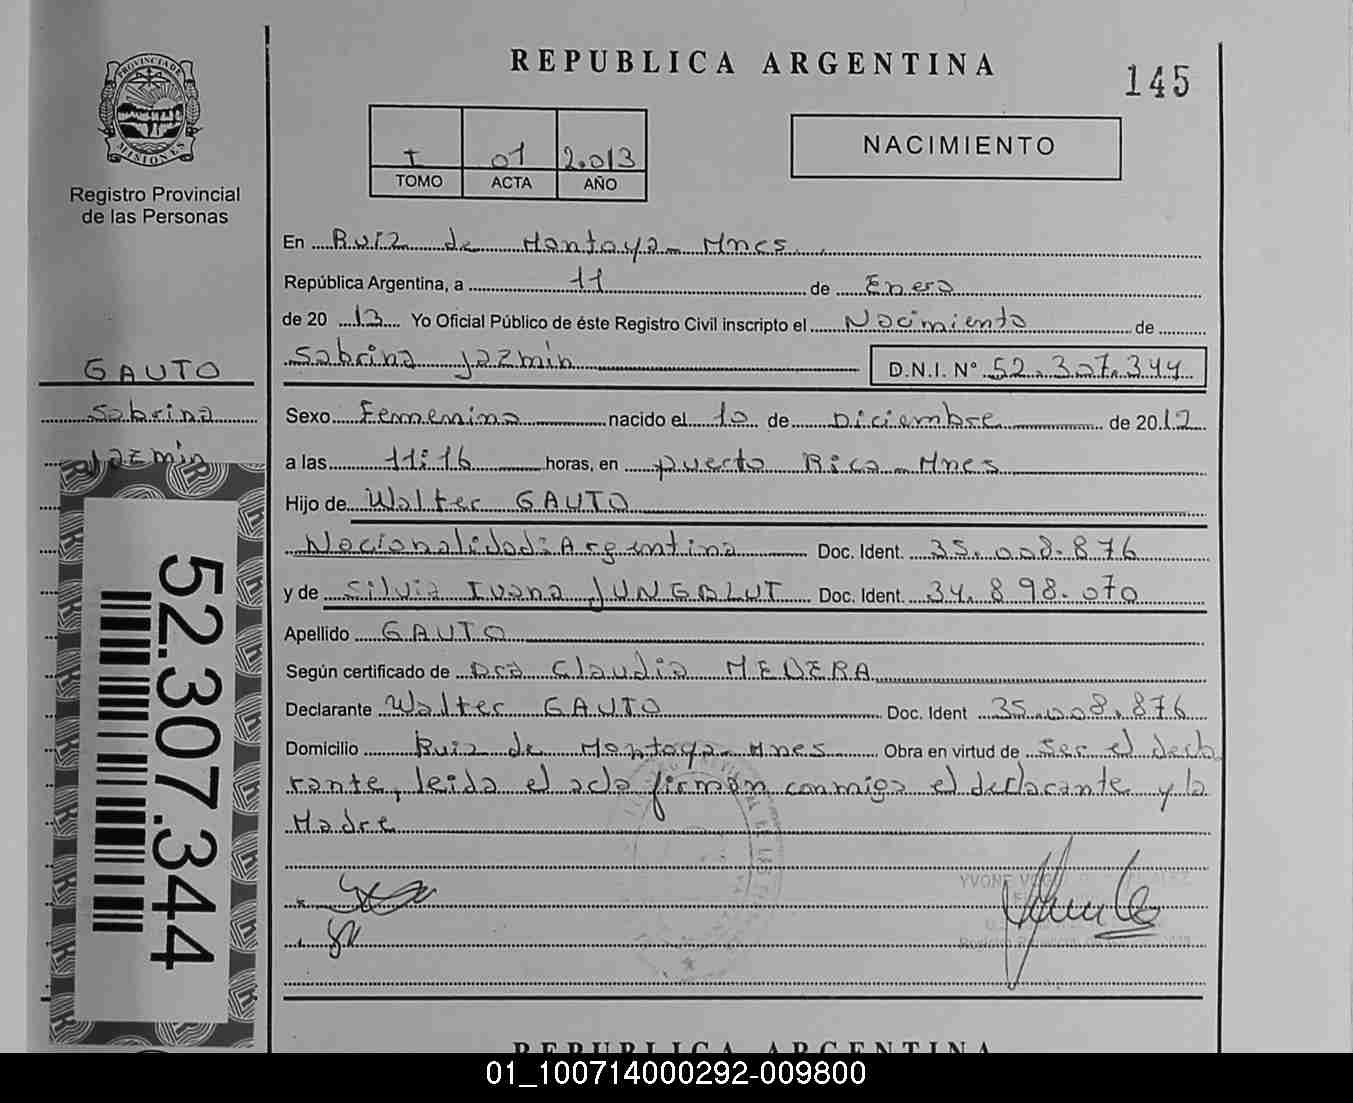 REPUBLICA ARGENTINA
145
PROVINCIA DE
MISIONES
Registro Provincial
de las Personas
I 01 2.013
TOMO ACTA AÑO
NACIMIENTO
En Ruiz de Montoya - Mnes
República Argentina, a 11 de Enero
de 20 13 Yo Oficial Público de éste Registro Civil inscripto el Nacimiento de
Sabrina Jazmin D.N.I. N° 52.307.344
GAUTO
Sabrina
Jazmin
52.307.344
Sexo Femenino nacido el 10 de Diciembre de 2012
a las 11:16 horas, en puerto Rico - Mnes
Hijo de Walter GAUTO
Nacionalidad: Argentina Doc. Ident. 35.008.876
y de Silvia Ivana JUNGBLUT Doc. Ident. 34.898.070
Apellido GAUTO
Según certificado de Dra Claudia MEDERA
Declarante Walter GAUTO Doc. Ident 35.008.876
Domicilio Ruiz de Montoya - Mnes Obra en virtud de Ser el decla
rante, leida el acta firman conmigo el declarante y la
Madre
REPUBLICA ARGENTINA
01_100714000292-009800